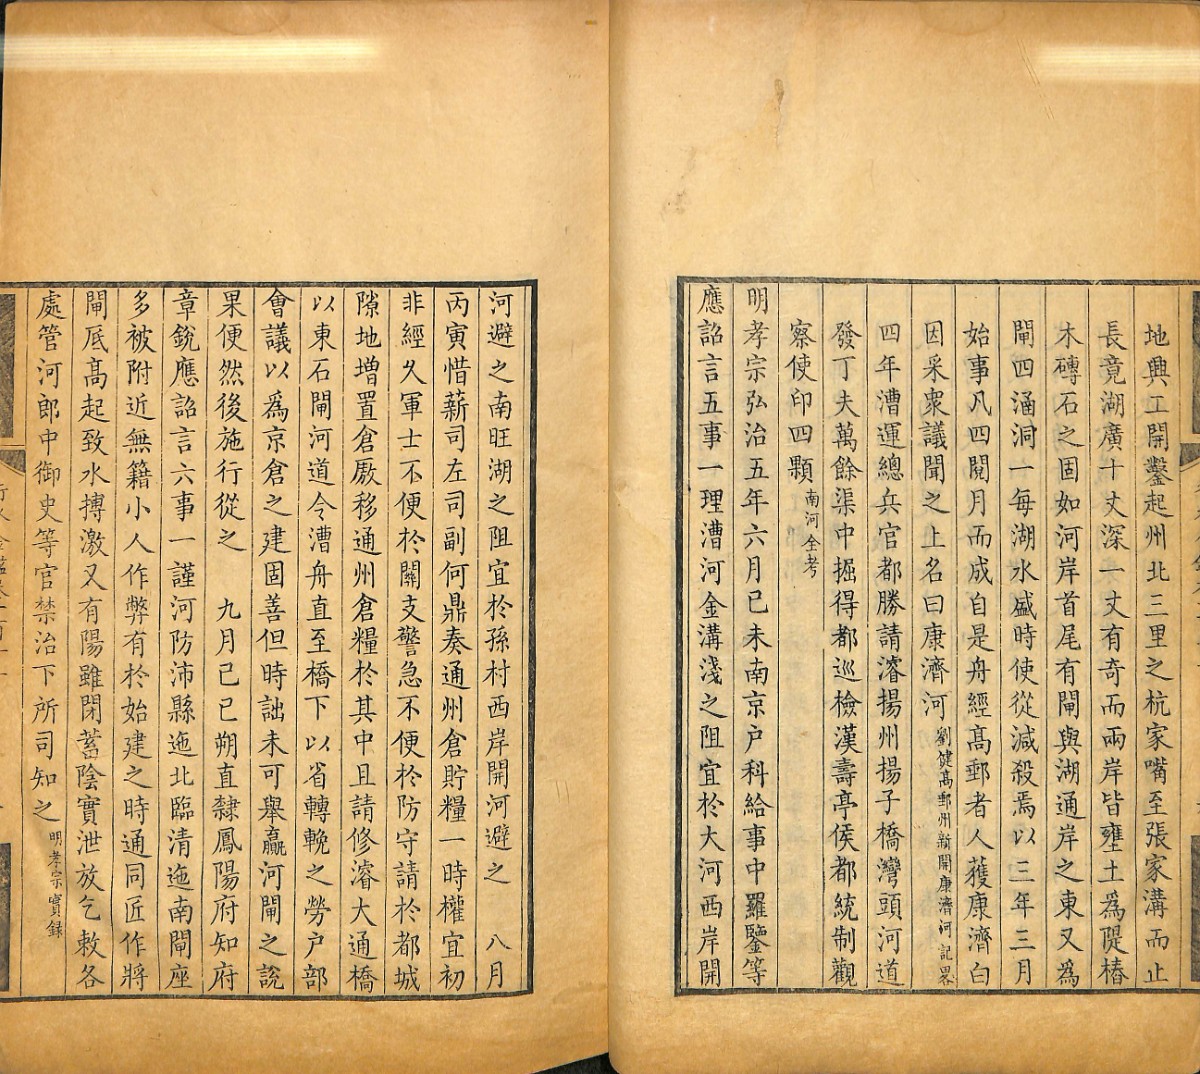 地興工開鑿起州北三里之杭家嘴至張家溝而止
長竟湖廣十丈深一丈有奇而兩岸皆壅土為隄樁
木磚石之固如河岸首尾有閘與湖通岸之東又為
閘四涵洞一每湖水盛時使從減殺焉以三年三月
始事凡四閱月而成自是舟經高郵者人獲康濟白
因采衆議聞之上名曰康濟河劉健高郵州新開康濟河記畧
四年漕運總兵官都勝請濬揚州揚子橋灣頭河道
發丁夫萬餘渠中掘得都巡檢漢壽亭侯都統制觀
察使印四顆南河全考
明孝宗弘治五年六月己未南京户科給事中羅鑒等
應詔言五事一理漕河金溝淺之阻宜於大河西岸開
河避之南旺湖之阻宜於孫村西岸開河避之 八月
丙寅惜薪司左司副何鼎奏通州倉貯糧一時權宜初
非經久軍士不便於關支警急不便於防守請於都城
隙地增置倉厫移通州倉糧於其中且請修濬大通橋
以東石閘河道令漕舟直至橋下以省轉輓之勞户部
會議以為京倉之建固善但時詘未可舉贏河閘之說
果便然後施行從之 九月己巳朔直隸鳳陽府知府
章銳應詔言六事一謹河防沛縣迤北臨清迤南閘座
多被附近無籍小人作弊有於始建之時通同匠作將
閘底高起致水搏激又有陽雖閉蓄陰實泄放乞敕各
處管河郎中御史等官禁治下所司知之明孝宗實錄